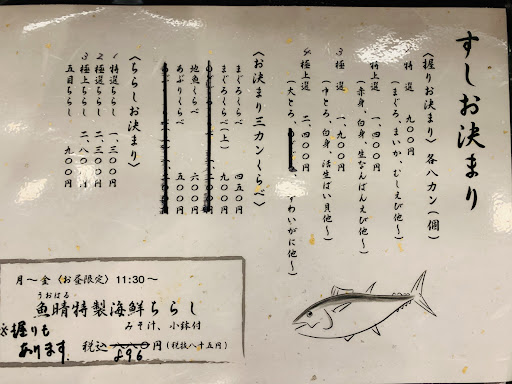 すしお決まり
〈握りお決まり〉各八カン(個)
特選 九〇〇円
(まぐろ、まいか、むしえび他〜)
特上選 一、四〇〇円
(赤身、白身、生なんばんえび他〜)
3極選 一、九〇〇円
(中とろ、白身、活生ばい貝他〜)
4極上選 二、四〇〇円
(大とろ、ずわいがに他〜)
〈お決まり三カンくらべ〉
まぐろくらべ 四五〇円
まぐろくらべ(上) 九〇〇円
地魚くらべ 六〇〇円
あぶりくらべ 五〇〇円
〈ちらしお決まり〉
1特選ちらし 一、三〇〇円
2極選ちらし 二、〇〇〇円
3極上ちらし 二、八〇〇円
五目ちらし 九〇〇円
月〜金〈お昼限定〉11:30〜
うおはる
魚晴特製海鮮ちらし
みそ汁、小鉢付
※握りも
あります
税込 896円(税抜八十五円)